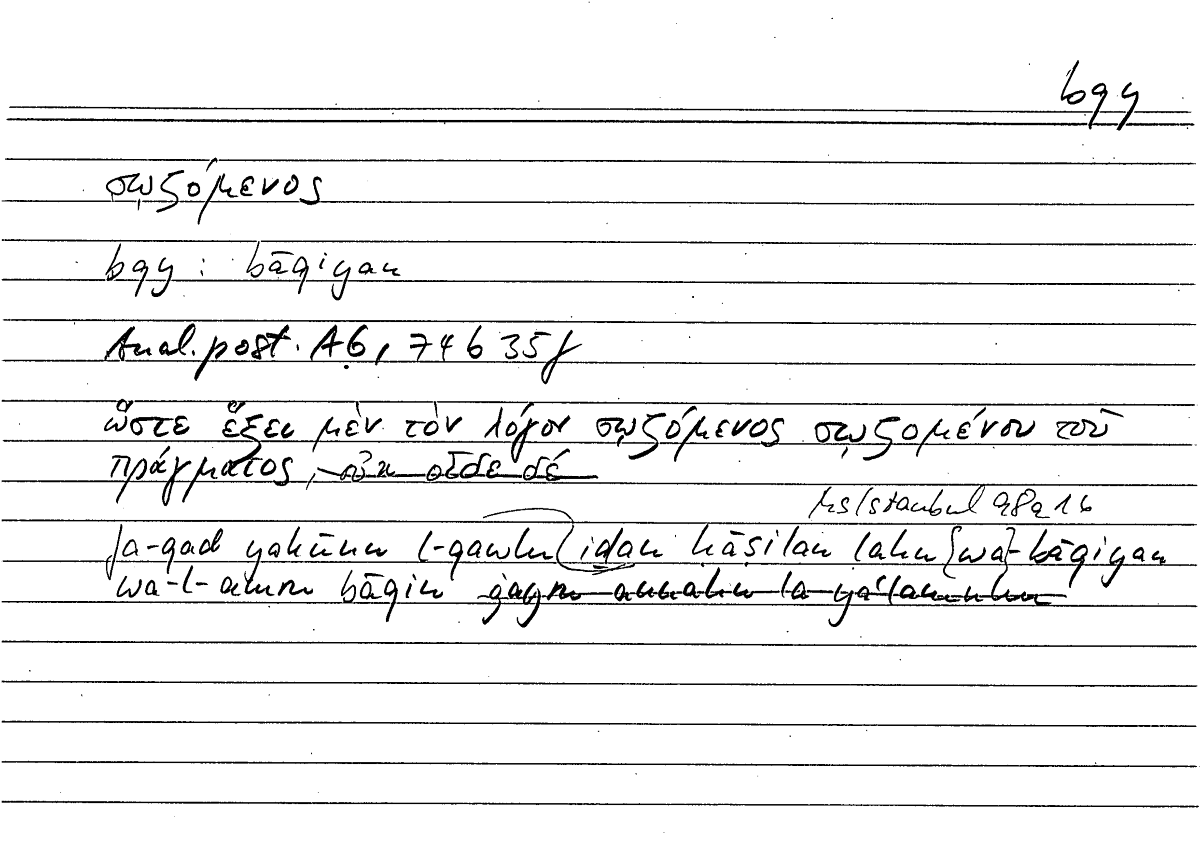 bqy
σῳζόμενος
bqy : bāqiyan
Anal. post. A6, 74 b 35 f
ὥστε ἕξει μὲν τὸν λόγον σῳζόμενος σῳζομένου τοῦ
πράγματος, οὐκ οἶδε δέ
Ms Istanbul 98a 16
fa-qad yakūnu l-qawlu iḏan ḥāṣilan lahu {wa}-bāqiyan
wa-l-amru bāqin ġayra annahu lā yaʿlamuhu